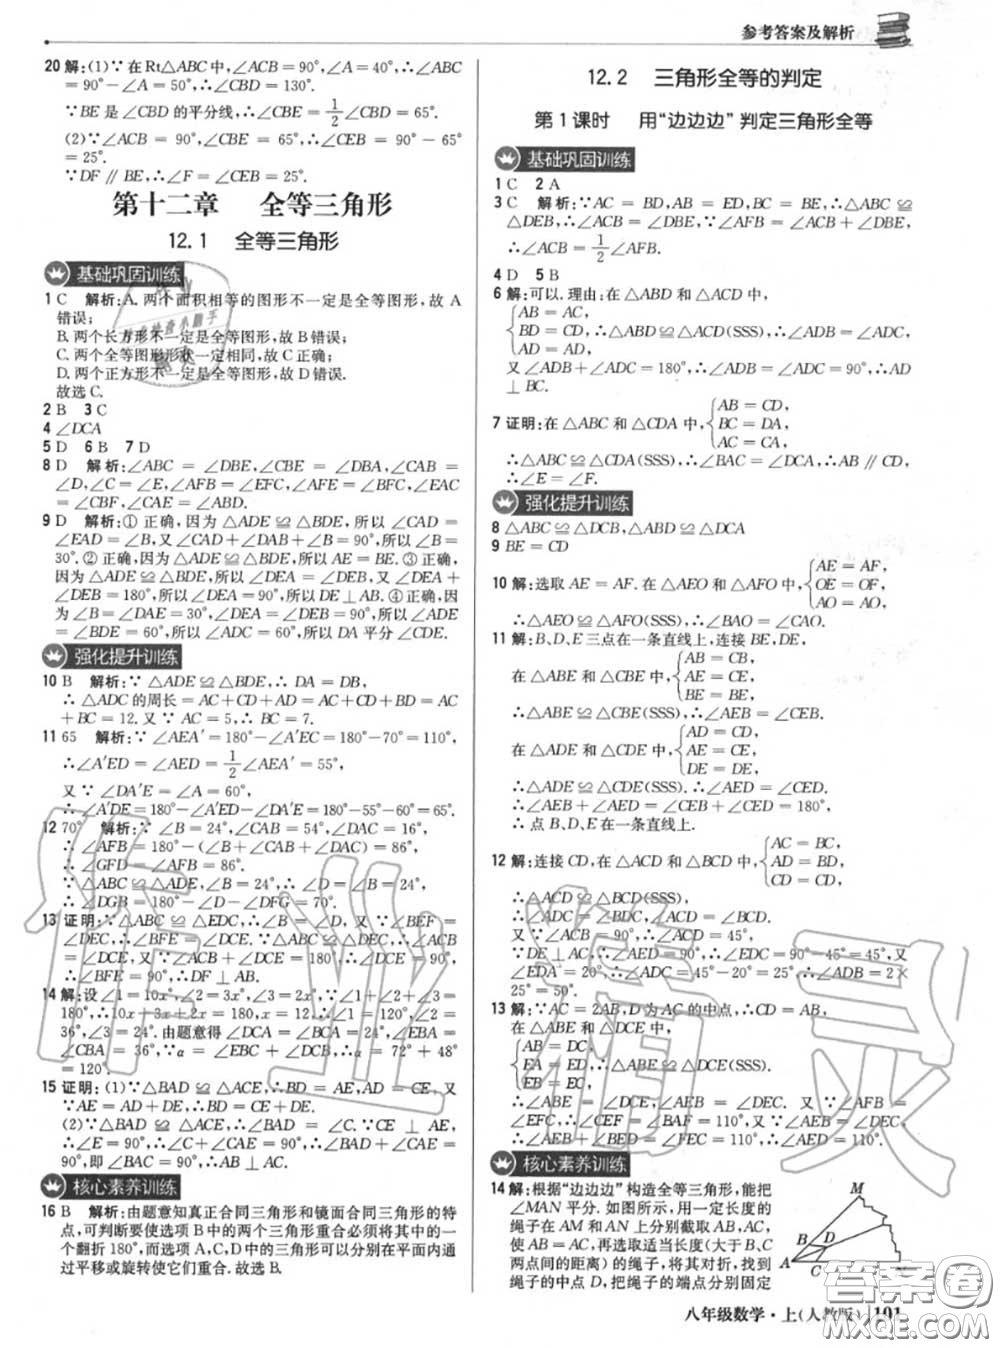 参考答案及解析
20 解:(1)∵在Rt△ABC中,∠ACB=90°,∠A=40°,∴∠ABC=
90°-∠A=50°,∴∠CBD=130°.
∵BE是∠CBD的平分线,∴∠CBE=1/2∠CBD=65°.
(2)∵∠ACB=90°,∠CBE=65°,∴∠CEB=90°-65°
=25°.
∵DF∥BE,∴∠F=∠CEB=25°.
第十二章 全等三角形
12.1 全等三角形
基础巩固训练
1 C 解析:A.两个面积相等的图形不一定是全等图形,故A
错误;
B.两个长方形不一定是全等图形,故B错误;
C.两个全等图形形状一定相同,故C正确;
D.两个正方形不一定是全等图形,故D错误.
故选C.
2 B 3 C
4 ∠DCA
5 D 6 B 7 D
8 D 解析:∠ABC=∠DBE,∠CBE=∠DBA,∠CAB=
∠D,∠C=∠E,∠AFB=∠EFC,∠AFE=∠BFC,∠EAC
=∠CBF,∠CAE=∠ABD.
9 D 解析:①正确,因为△ADE≌△BDE,所以∠CAD
=∠EAD=∠B,又∠CAD+∠DAB+∠B=90°,所以∠B=
30°.②正确,因为△ADE≌△BDE,所以AE=BE.③正确,
因为△ADE≌△BDE,所以∠DEA=∠DEB,又∠DEA
+∠DEB=180°,所以∠DEA=90°,所以DE⊥AB.④正确,
因为∠B=∠DAE=30°,∠DEA=∠DEB=90°,所以∠ADE
=∠BDE=60°,所以∠ADC=60°,所以DA平分∠CDE.
强化提升训练
10 B 解析:∵△ADE≌△BDE,∴DA=DB,
∴△ADC的周长=AC+CD+AD=AC+CD+BD=AC
+BC=12.又∵AC=5,∴BC=7.
11 65 解析:∵∠AEA′=180°-∠A′EC=180°-70°=110°,
∴∠A′ED=∠AED=1/2∠AEA′=55°,
又∵∠DA′E=∠A=60°,
∴∠A′DE=180°-∠A′ED-∠DA′E=180°-55°-60°=65°.
12 70° 解析:∵∠B=24°,∠CAB=54°,∠DAC=16°,
∴∠AFB=180°-(∠B+∠CAB+∠DAC)=86°,
∴∠GFD=∠AFB=86°.
∵△ABC≌△ADE,∠B=24°,∴∠D=∠B=24°,
∴∠DGB=180°-∠D-∠DFG=70°.
13 证明:∵△ABC≌△EDC,∴∠B=∠D.又∵∠BEF=
∠DEC,∴∠BFE=∠DCE.∵△ABC≌△DEC,∴∠ACB
=∠DCE,又∵∠ACB+∠DCE=180°,∴∠DCE=90°,
∴∠BFE=90°,∴DF⊥AB.
14 解:设∠1=10x°,∠2=3x°,∠3=2x°,∵∠1+∠2+∠3=
180°,∴10x+3x+2x=180,x=12.∴∠1=120°,∠2=
36°,∠3=24°.由题意得∠DCA=∠BCA=36°,∠EBA=
∠CBA=36°,∵∠α=∠EBC+∠DCB,∴∠α=72°+48°
=120°.
15 证明:(1)∵△BAD≌△ACE,∴BD=AE,AD=CE,又
∵AE=AD+DE,∴BD=CE+DE.
(2)∵△BAD≌△ACE,∴∠BAD=∠C.∵CE⊥AE,
∴∠E=90°,∴∠C+∠CAE=90°,∴∠BAD+∠CAE=
90°,即∠BAC=90°,∴BA⊥AC.
核心素养训练
16 B 解析:由题意知真正合同三角形和镜面合同三角形的特
点,可判断要使选项B中的两个三角形重合必须将其中的一
个翻折180°,而选项A,C,D中的三角形可以分别在平面内通
过平移或旋转使它们重合.故选B.
12.2 三角形全等的判定
第1课时 用“边边边”判定三角形全等
基础巩固训练
1 C 2 A
3 C 解析:∵AC=BD,AB=ED,BC=BE,∴△ABC≌
△DEB,∴∠ACB=∠DBE,∵∠AFB=∠ACB+∠DBE,
∴∠ACB=1/2∠AFB.
4 D 5 B
6 解:可以.理由:在△ABD和△ACD中,
AB=AC,
BD=CD,∴△ABD≌△ACD(SSS),∴∠ADB=∠ADC,
AD=AD,
又∠ADB+∠ADC=180°,∴∠ADB=∠ADC=90°,∴AD
⊥BC.
AB=CD,
7 证明:在△ABC和△CDA中,BC=DA,
AC=CA,
∴△ABC≌△CDA(SSS),∴∠BAC=∠DCA,∴AB∥CD,
∴∠E=∠F.
强化提升训练
8 △ABC≌△DCB,△ABD≌△DCA
9 BE=CD
AE=AF,
10 解:选取AE=AF.在△AEO和△AFO中,OE=OF,
AO=AO,
∴△AEO≌△AFO(SSS),∴∠BAO=∠CAO.
11 解:B、D、E三点在一条直线上,连接BE,DE,
AB=CB,
在△ABE和△CBE中,AE=CE,
BE=BE,
∴△ABE≌△CBE(SSS),∴∠AEB=∠CEB.
AD=CD,
在△ADE和△CDE中,AE=CE,
DE=DE,
∴△ADE≌△CDE(SSS),∴∠AED=∠CED.
∴∠AEB+∠AED=∠CEB+∠CED=180°,
∴点B、D、E在一条直线上.
AC=BC,
12 解:连接CD,在△ACD和△BCD中,AD=BD,
CD=CD,
∴△ACD≌△BCD(SSS),
∴∠ADC=∠BDC,∠ACD=∠BCD.
又∵∠ACB=90°,∴∠ACD=45°,
∵DE⊥AC,∴∠CDE=90°-∠ACD=90°-45°=45°,又
∠EDA=20°,∴∠ADC=45°-20°=25°,∴∠ADB=2×
25°=50°.
13 解:∵AC=2AB,D为AC的中点,∴CD=AB,
在△ABE和△DCE中,
AB=DC,
EA=ED,∴△ABE≌△DCE(SSS),
EB=EC,
∴∠ABE=∠DCE,∠AEB=∠DEC.又∵∠AFB=
∠EFC,∴∠CEF=∠BAF=110°,
又∵∠AEB=∠DEC,∴∠AED=∠BEC=110°.
核心素养训练
14 解:根据“边边边”构造全等三角形,能把
∠MAN平分.如图所示,用一定长度的
绳子在AM和AN上分别截取AB,AC,
使AB=AC,再选取适当长度(大于B、C
两点间的距离)的绳子,将其对折,找到
绳子的中点D,把绳子的端点分别固定
M
B
D
A
C
八年级数学·上(人教版) 101
作业精灵
答案圈